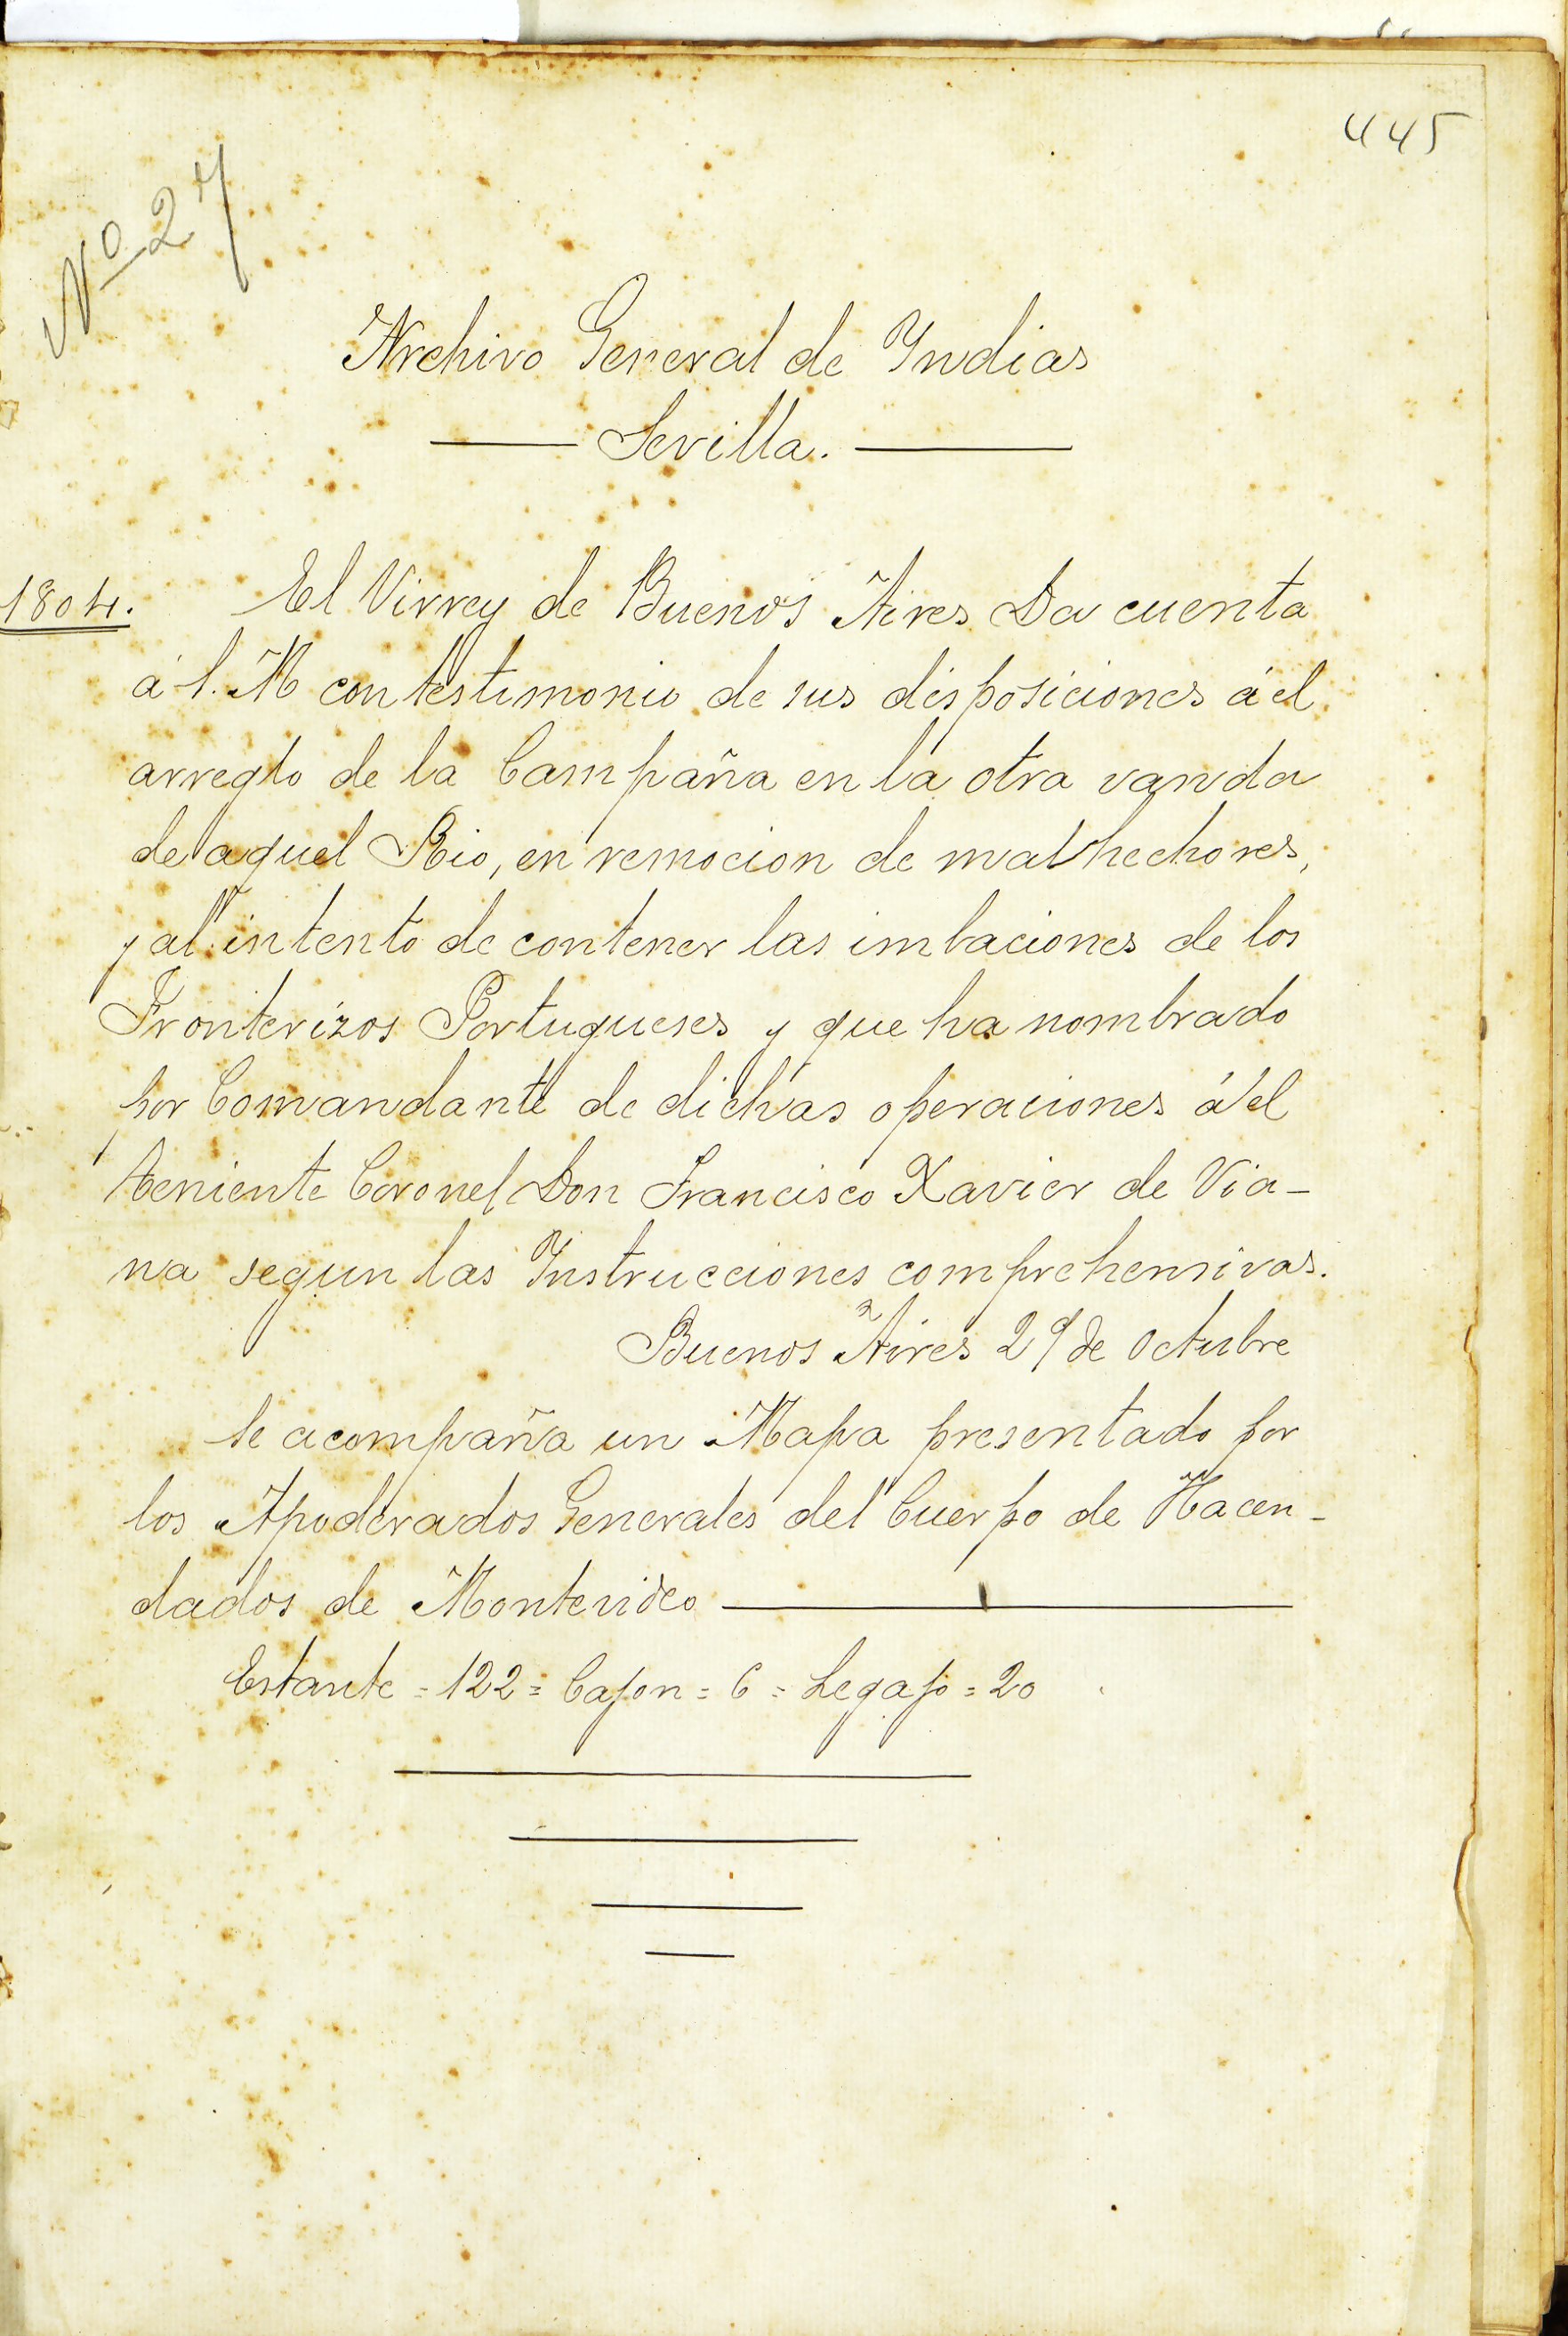 445
Nº 27
Archivo General de Yndias
Sevilla.
1804. El Virrey de Buenos Aires Da cuenta
á S. M con testimonio de sus disposiciones á el
arreglo de la Campaña en la otra vanda
de aquel Rio, en remocion de malhechores,
y al intento de contener las imbaciones de los
Fronterizos Portugueses y que ha nombrado
por Comandante de dichas operaciones á el
teniente Coronel Don Francisco Xavier de Via-
na segun las Ynstrucciones comprehensivas.
Buenos Aires 29 de Octubre
Se acompaña un Mapa presentado por
los Apoderados Generales del Cuerpo de Hacen-
dados de Montevideo
Estante = 122 = Cajon = 6 = Legajo = 20